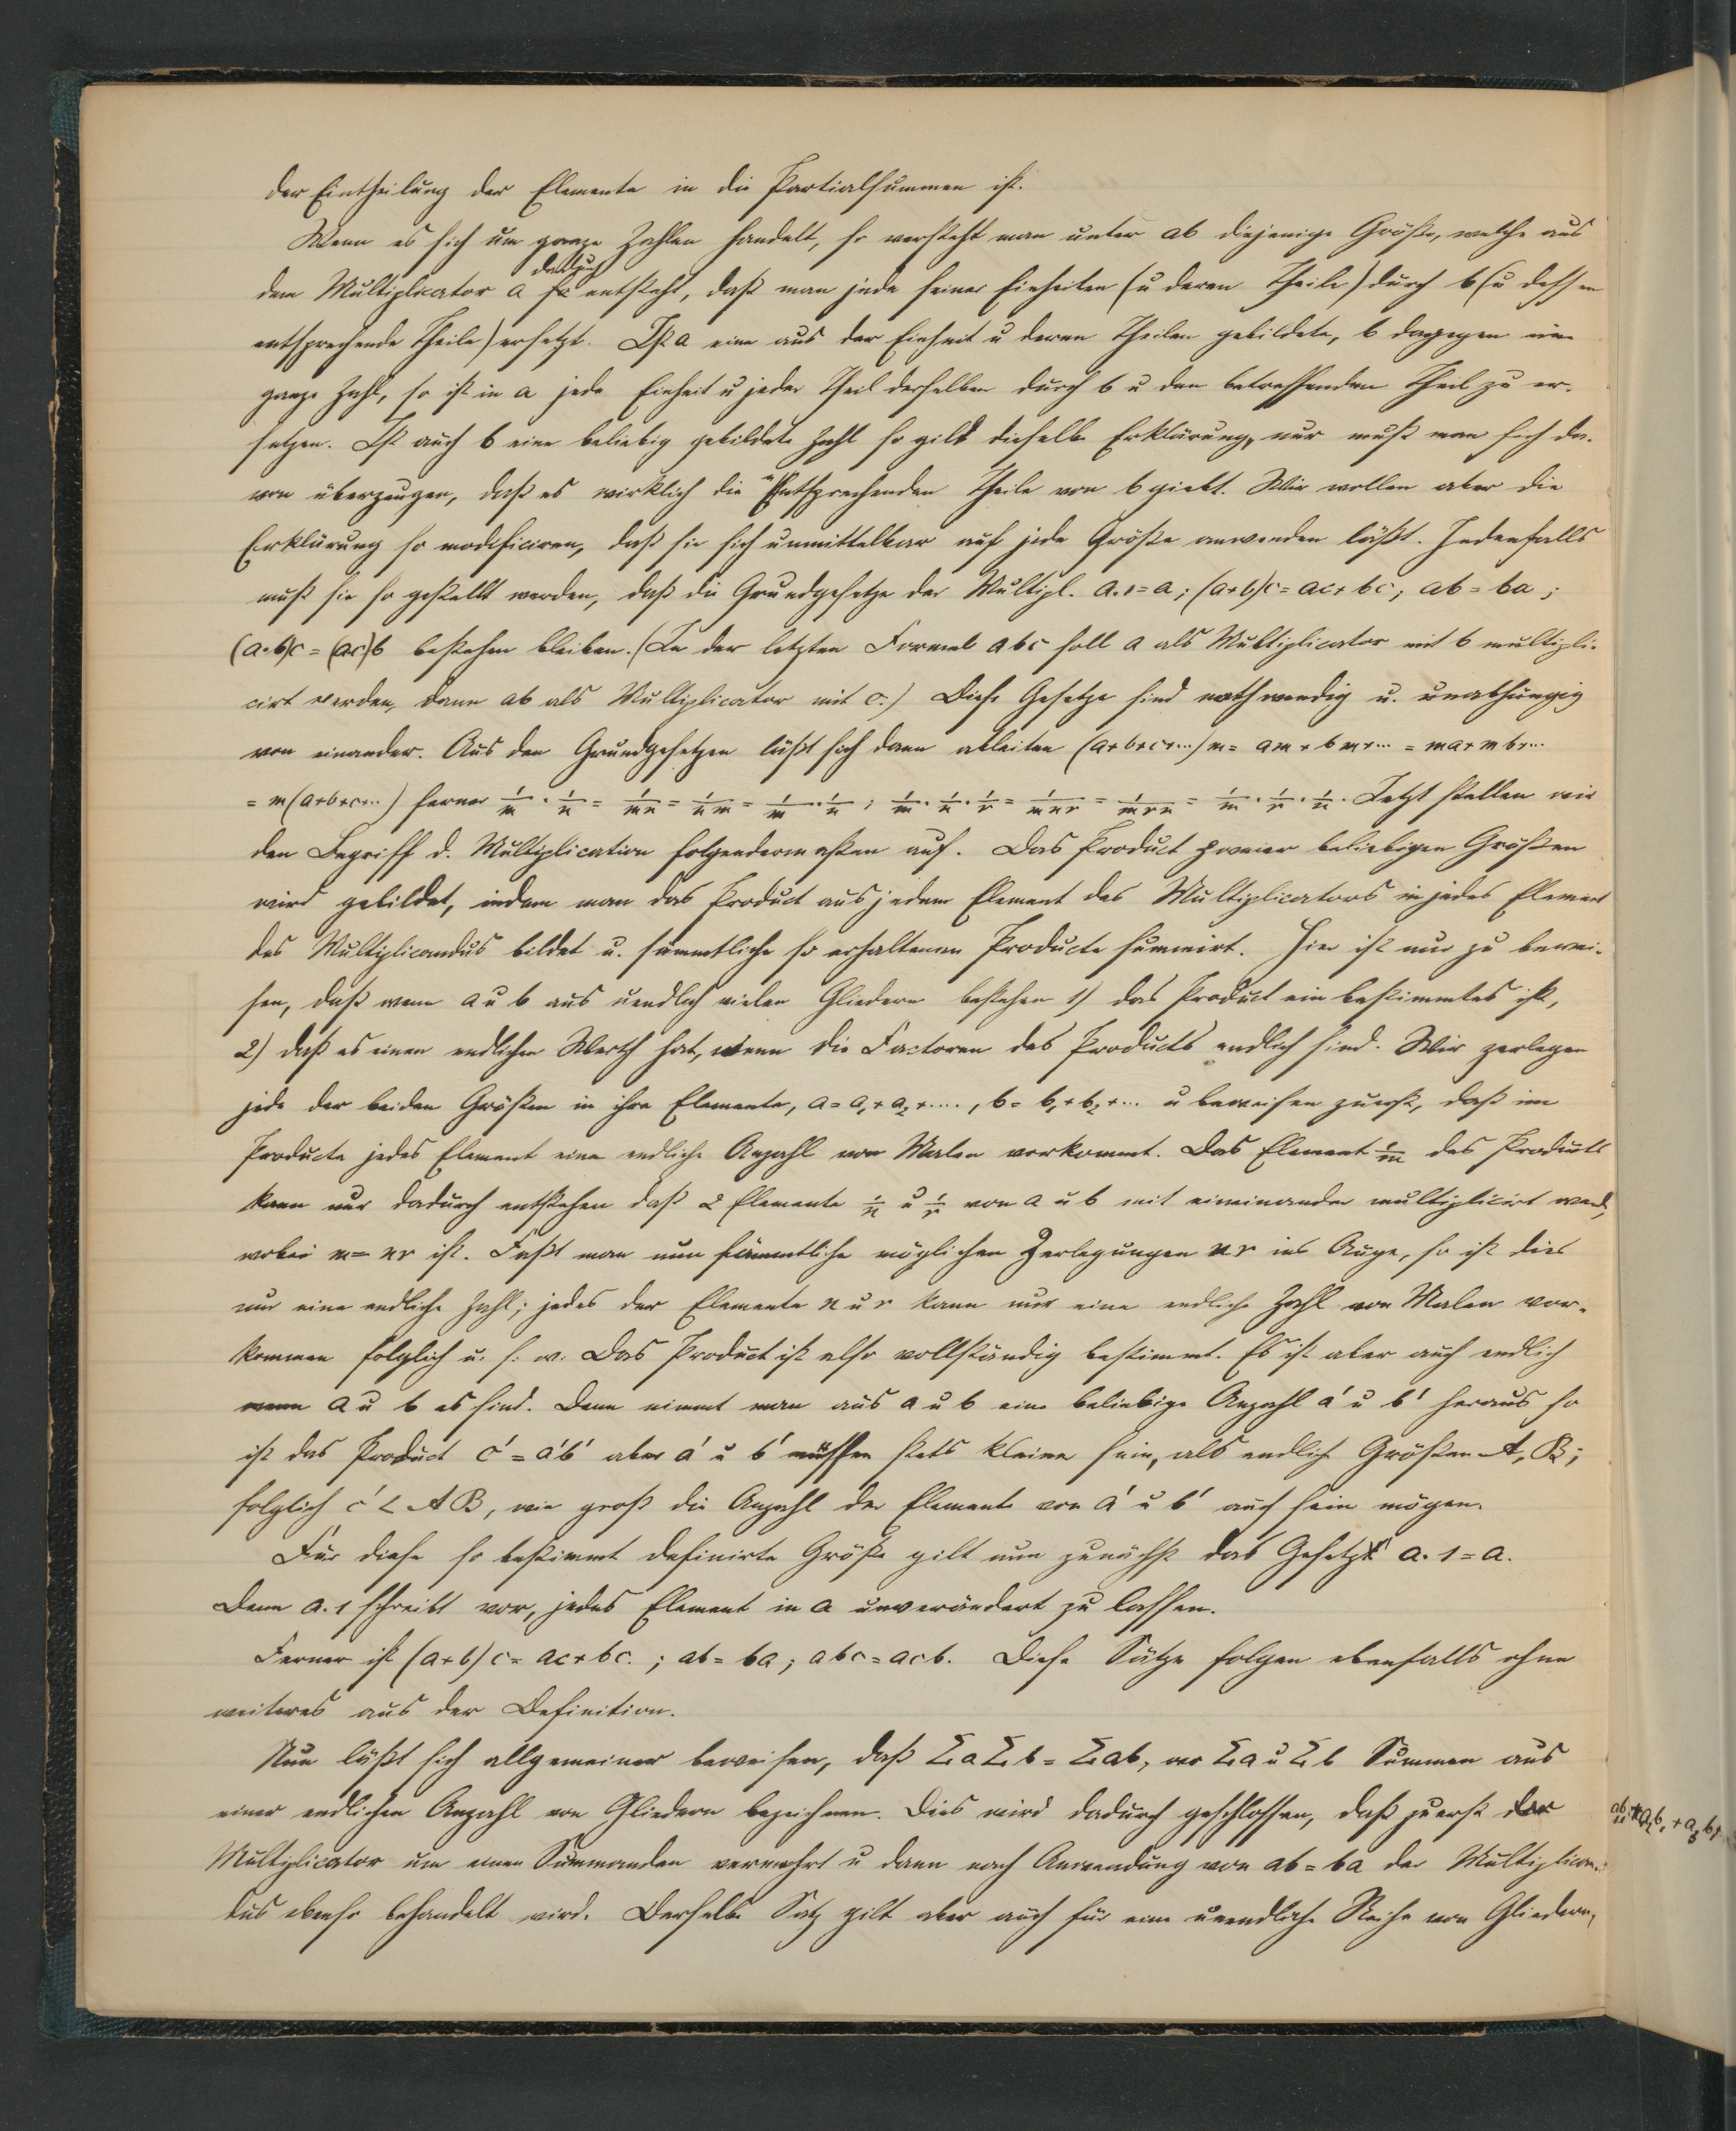 der Eintheilung der Elemente in die Partialsummen ist.
Wenn es sich um ganze Zahlen handelt, so versteht man unter ab diejenige Größe, welche aus
dadurch
dem Multiplicator a so entsteht, daß man jede seiner Einheiten (u deren Theile) durch b (u dessen
entsprechende Theile) ersetzt. Ist a eine aus der Einheit u deren Theilen gebildete, b dagegen eine
ganze Zahl, so ist in a jede Einheit u jeder Theil derselben durch b u den betreffenden Theil zu er-
setzen. Ist auch b eine beliebig gebildete Zahl so gilt dieselbe Erklärung, nur muß man sich da-
von überzeugen, daß es wirklich die entsprechenden Theile von b giebt. Wir wollen aber die
Erklärung so modificiren, daß sie sich unmittelbar auf jede Größe anwenden läßt. Jedenfalls
muß sie so gestellt werden, daß die Grundgesetze der Multipl. a.1=a; (a+b)c=ac+bc; ab=ba;
(a.b)c=(ac)b bestehen bleiben. (In der letzten Formel abc soll a als Multiplicator mit b multipli-
cirt werden, dann ab als Multiplicator mit c.) Diese Gesetze sind nothwendig u. unabhängig
von einander. Aus den Grundgesetzen läßt sich dann ableiten (a+b+c+...)m = am+bm+... = ma+mb+...
= m(a+b+c+...) ferner 1/m · 1/n = 1/mn = 1/nm = 1/n · 1/m; 1/m · 1/n · 1/r = 1/mnr = 1/mrn = 1/m · 1/r · 1/n. Jetzt stellen wir
den Begriff d. Multiplication folgendermaßen auf. Das Product zweier beliebigen Größen
wird gebildet, indem man das Product aus jedem Element des Multiplicators in jedes Element
des Multiplicandus bildet u. sämmtliche so erhaltenen Producte summirt. Hier ist nur zu bewei-
sen, daß wenn a u b aus unendlich vielen Gliedern bestehen 1) das Product ein bestimmtes ist,
2) daß es einen endlichen Werth hat, wenn die Factoren des Products endlich sind. Wir zerlegen
jede der beiden Größen in ihre Elemente, a=a₁+a₂+...., b=b₁+b₂+... u beweisen zuerst, daß im
Producte jedes Element eine endliche Anzahl von Malen vorkommt. Das Element 1/m des Products
kann nur dadurch entstehen daß 2 Elemente 1/n u 1/r von a u b mit eineinander multiplicirt werd,
wobei m=nr ist. Faßt man nun sämmtliche möglichen Zerlegungen nr ins Auge, so ist dies
nur eine endliche Zahl; jedes der Elemente n u r kann nur eine endliche Zahl von Malen vor-
kommen folglich u. s. w. Das Product ist also vollständig bestimmt. Es ist aber auch endlich
wenn a u b es sind. Denn nimmt man aus a u b eine beliebige Anzahl a' u b' heraus so
ist das Product c'=a'b' aber a' u b' müssen stets kleiner sein, als endliche Größen A, B;
folglich c' < AB, wie groß die Anzahl der Elemente von a' u b' auch sein mögen.
Für diese so bestimmt definirte Größe gilt nun zunächst das Gesetz a.1=a.
Denn a.1 schreibt vor, jedes Element in a unverändert zu lassen.
Ferner ist (a+b)c=ac+bc.; ab=ba; abc=acb. Diese Sätze folgen ebenfalls ohne
weiteres aus der Definition.
Nun läßt sich allgemeiner beweisen, daß Σa Σb = Σab, wo Σa u Σb Summen aus
einer endlichen Anzahl von Gliedern bezeichnen. Dies wird dadurch geschlossen, daß zuerst der
Multiplicator um einen Summanden vermehrt u dann nach Anwendung von ab=ba der Multiplican-
dus ebenso behandelt wird. Derselbe Satz gilt aber auch für eine unendliche Reihe von Gliedern,